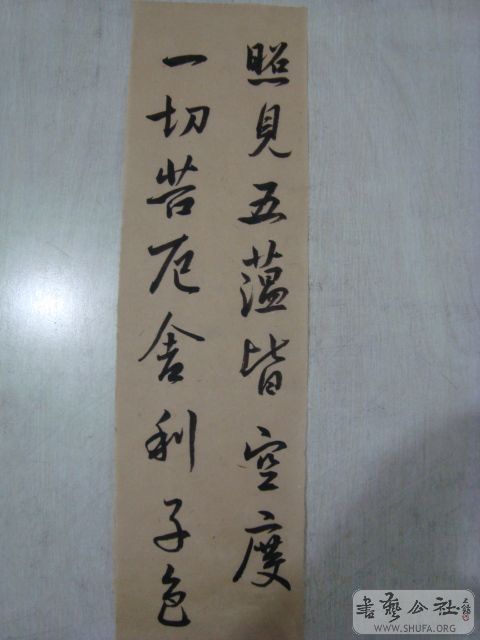 照見五蘊皆空度
一切苦厄舍利子色
書藝公社
WWW.SHUFA.ORG